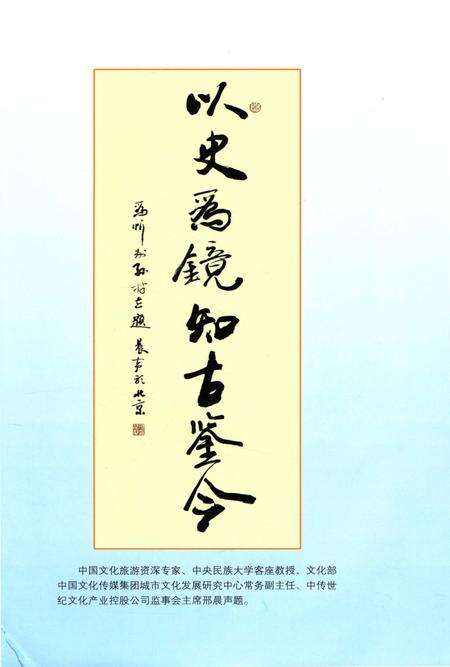 以史為鏡知古鉴今
中国文化旅游资深专家、中央民族大学客座教授、文化部
中国文化传媒集团城市文化发展研究中心常务副主任、中传世
纪文化产业控股公司监事会主席邢晨声题。